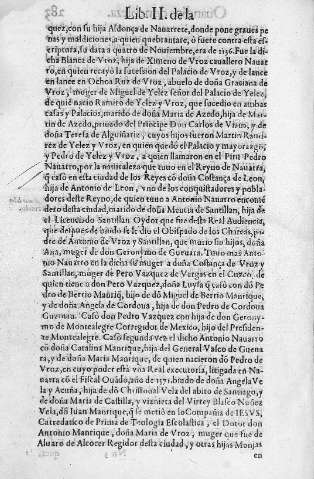 Lib. II. de la
quez, con su hija Aldonça de Nauarrete, donde pone graues pe
nas y maldiciones a quien quebrantare, o fuere contra esta es-
criptura, su data a quatro de Nouiembre, era de 1136. Fue la di-
cha Blanca de Vroz, hija de Ximeno de Vroz cauallero Nauar
ro, en quien recayò la sucession del Palacio de Vroz, y de lance
en lance en Ochoa Ruiz de Vroz, abuelo de doña Graciana de
Vroz, muger de Miguel de Yelez señor del Palacio de Yelez,
de quiē nacio Ramiro de Yelez y Vroz, que sucedio en ambas
casas y Palacios, marido de doña Maria de Azedo, hija de Mar
tin de Azedo, priuado del Principe Don Carlos de Viana, y de
doña Teresa de cuyos hijos fueron Martin Rami-
rez de Yelez y Vroz, en quien quedò el Palacio y mayorazgo,
y Pedro de Yelez y Vroz, a quien llamaron en el Piru Pedro
Nauarro, por la naturaleza que tuuo en el Reyno de Nauarra,
q̃ casò en esta ciudad de los Reyes cō doña Costança de Leon,
hija de Antonio de Leon, vno de los conquistadores y pobla-
dores deste Reyno, de quien tuuo a Antonio Nauarro encomē
dero desta ciudad, marido de doña Mencia de Santillan, hija de
el Licenciado Santillan Oydor que fue desta Real Audiencia,
que despues de biudo se le dio el Obispado de los Charcas, pa-
dre de Antonio de Vroz y Santillan, que murio sin hijos, doña
Ana, muger de don Geronymo de Gueuara. Tuuo mas Anto-
nio Nauarro en la dicha su muger a doña Costança de Vroz y
Santillan, muger de Pero Vazquez de Vargas en el Cuzco, de
quien tiene a don Pero Vazquez, doña Luysa q̃ casò con dō Pe
dro de Berrio Manriq̃, hijo de dō Miguel de Berrio Manrique,
y de doña Angela de Cordoua, hija de don Pedro de Cordoua
Guzman. Casò don Pedro Vazquez con hija de don Gerony-
mo de Montealegre Corregidor de Mexico, hijo del Presiden-
te Montealegre. Casò segunda vez el dicho Antonio Nauarro
cō doña Catalina Manrique, hija del General Vasco de Gueua
ra, y de doña Maria Manrique, de quien nacieron dō Pedro de
Vroz, en cuyo poder està vna Real executoria, litigada en Na-
uarra cō el fiscal Ouādo, año de 1571. biado de doña Angela Ve
la y Acuña, hija de dō Christoual Vela del abito de Santiago, y
de doña Maria de Castilla, y viznieta del Virrey Blasco Nuñez
Vela, dō Iuan Manrique, q̃ se metiò en la Compañia de IESVS,
Catredatico de Prima de Teologia Escolastica, el Dotor don
Antonio Manrique, doña Maria de Vroz, muger que fue de
Aluaro de Alcocer Regidor desta ciudad, y otras hijas Monjas
en